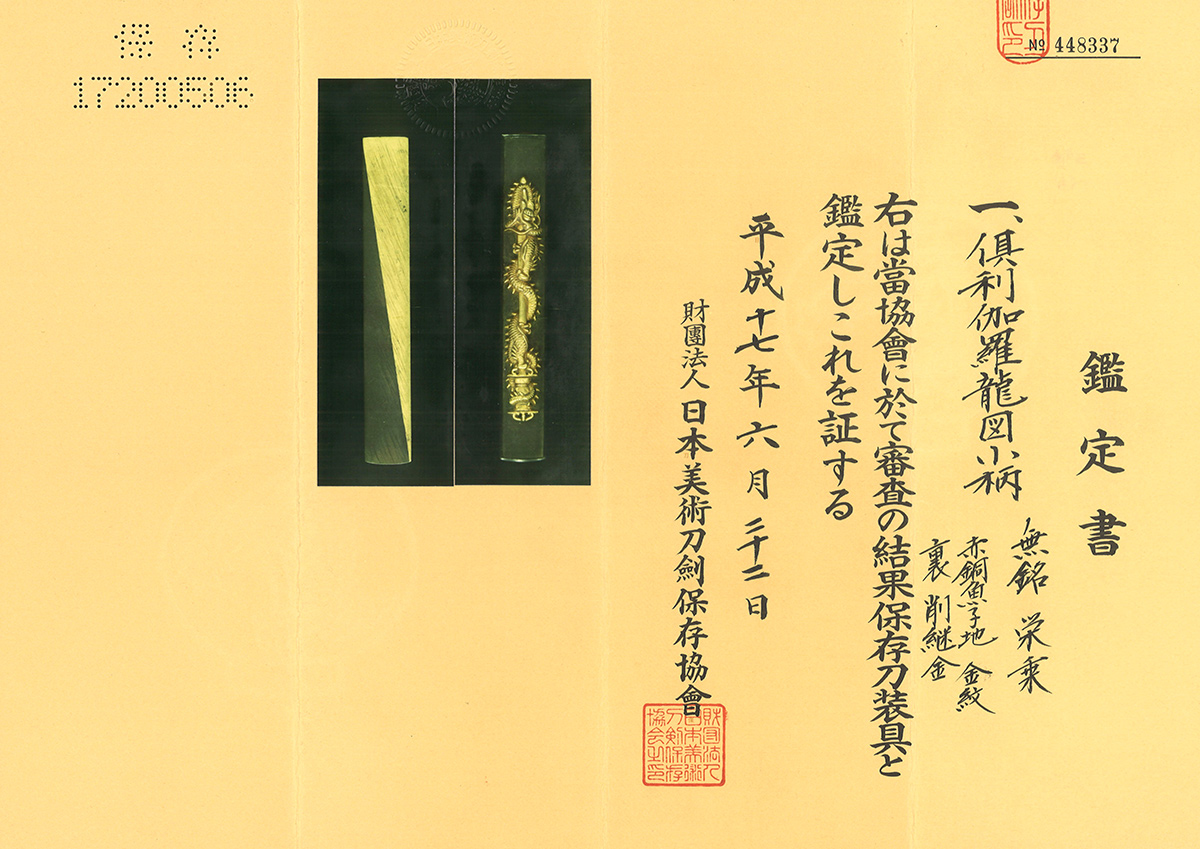 № 448337
鑑定書
一、倶利伽羅龍図小柄
無銘 栄乗
赤銅魚子地 金紋
裏 削継金
右は當協會に於て審査の結果保存刀装具と
鑑定しこれを証する
平成十七年六月二十二日
財團法人日本美術刀劍保存協會
財団法人日本美術刀剣保存協会之印
保存
17200506